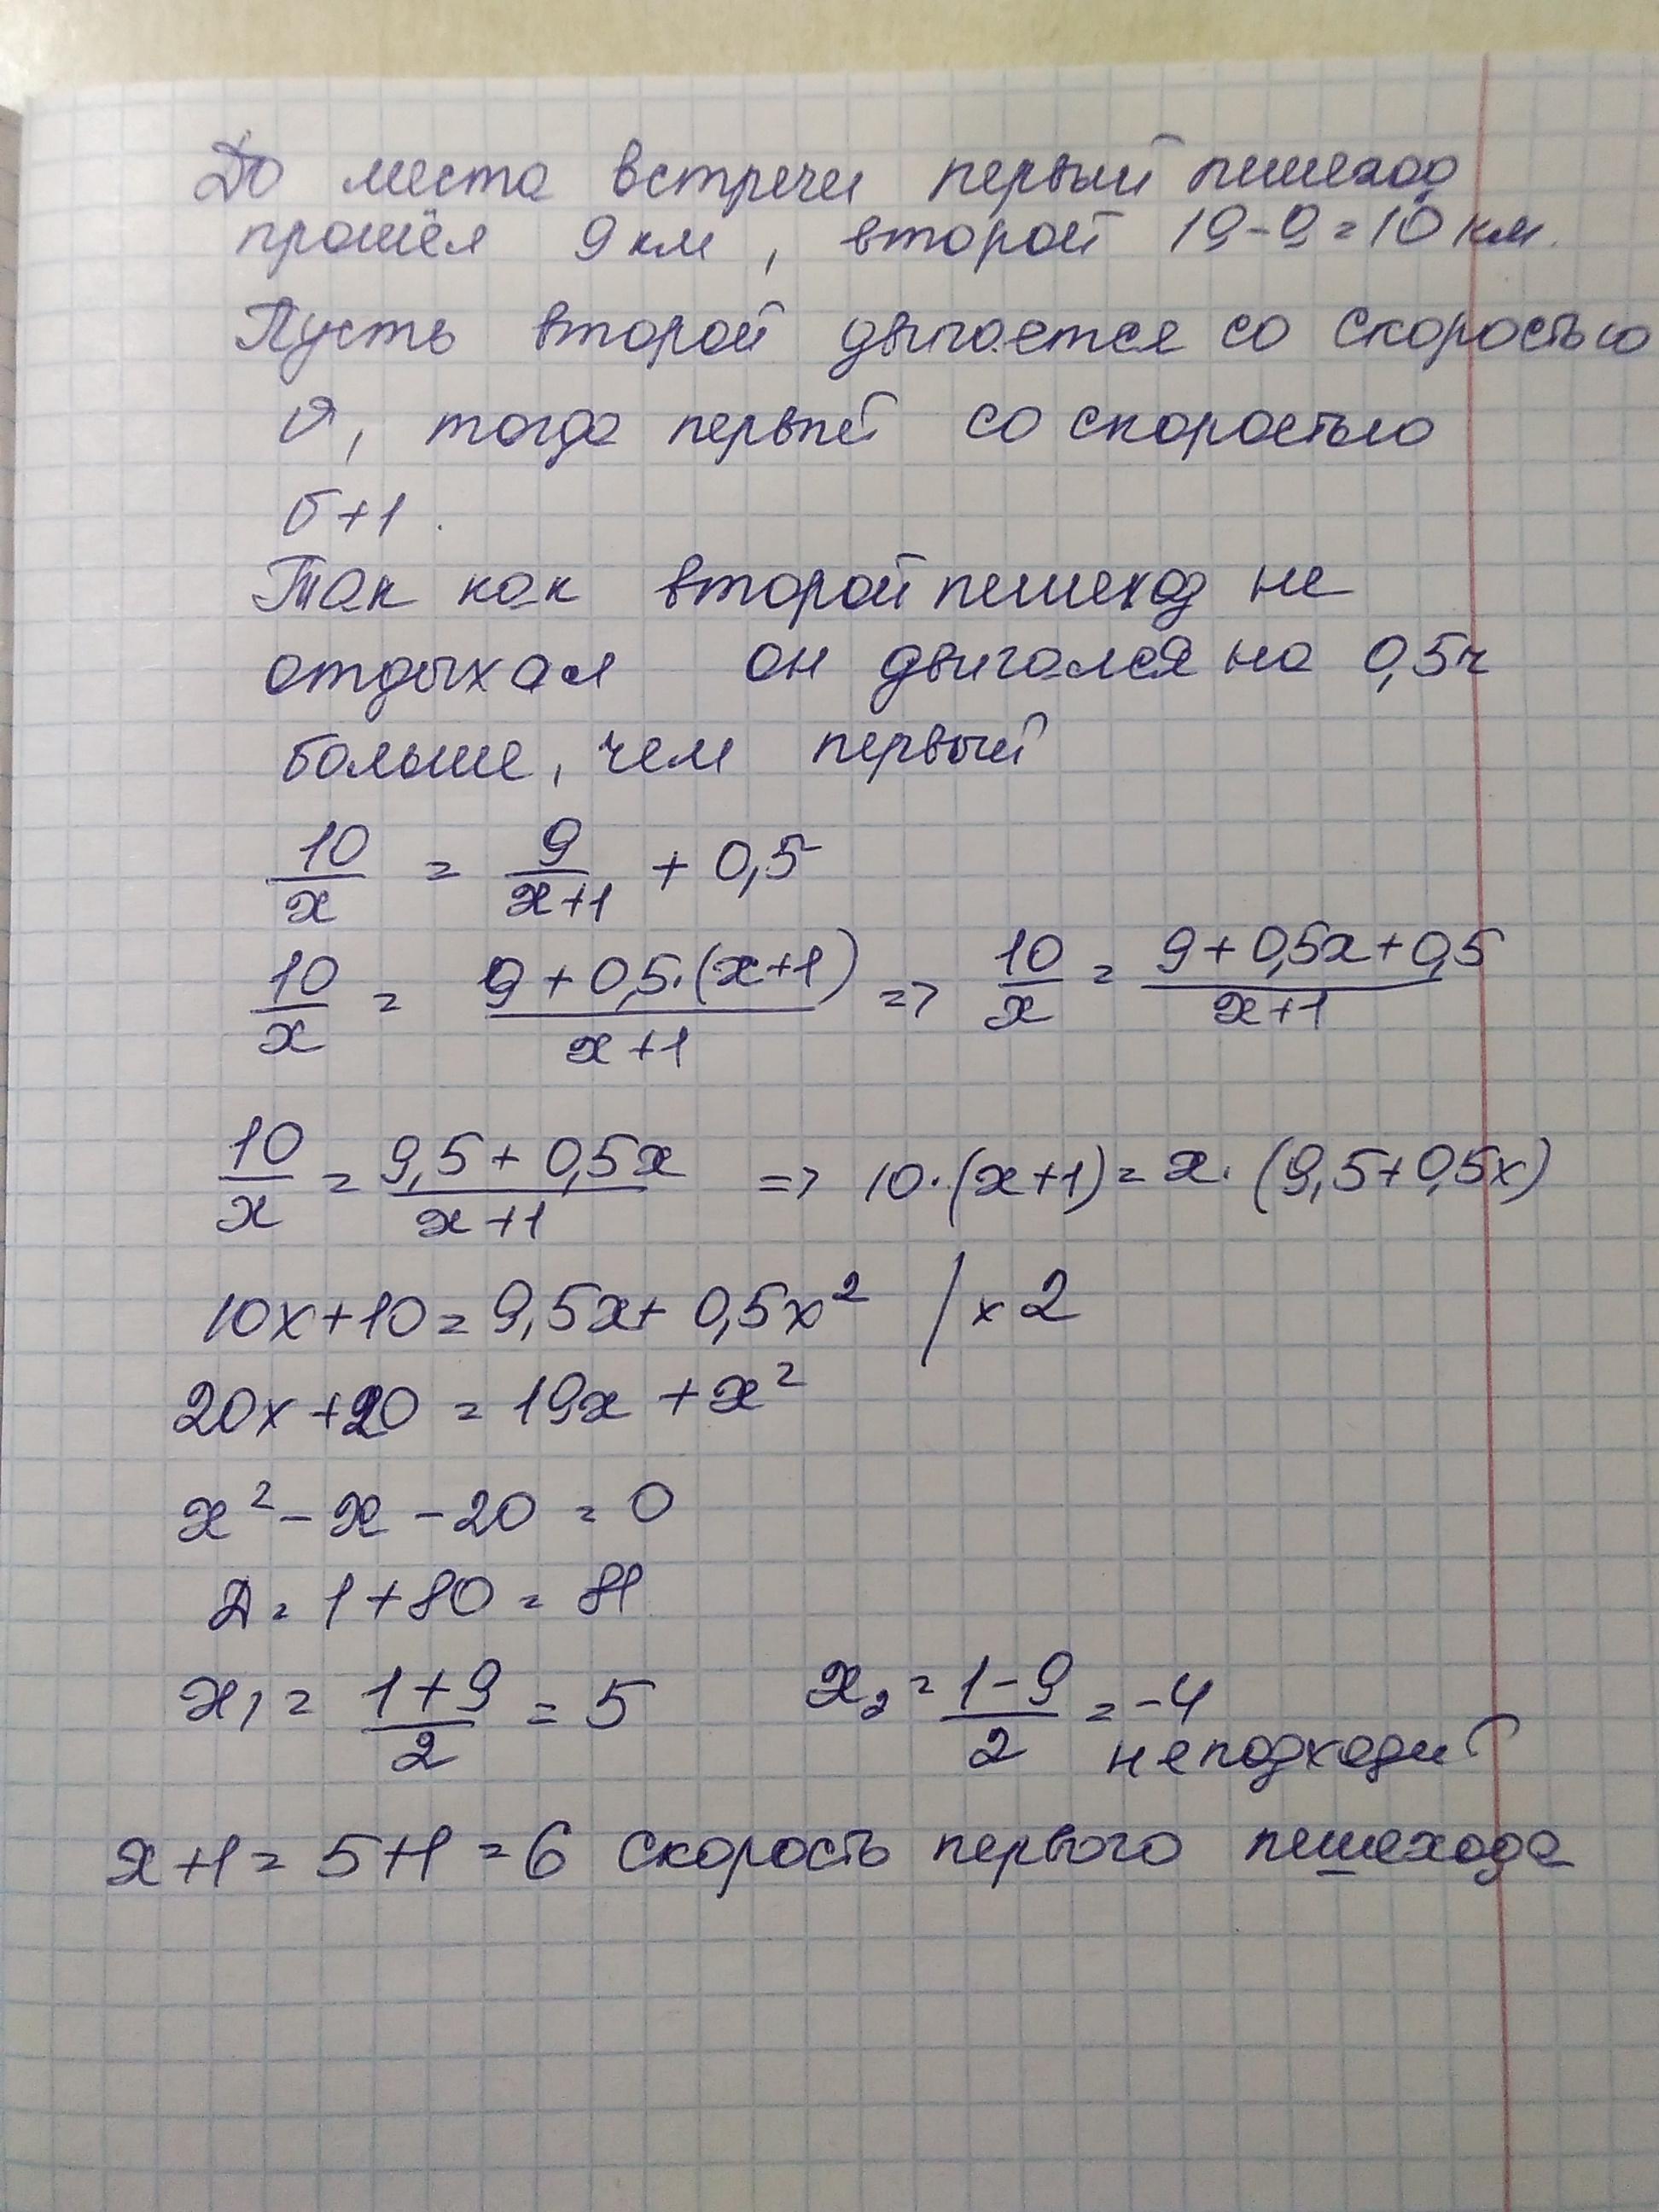 До места встречи первый пешеход
прошёл 9 км, второй 19-9=10 км.
Пусть второй двигается со скоростью
υ, тогда первый со скоростью
υ+1.
Так как второй пешеход не
отдыхал он двигался на 0,5ч
больше, чем первый
10/x = 9/(x+1) + 0,5
10/x = (9+0,5·(x+1))/(x+1) => 10/x = (9+0,5x+0,5)/(x+1)
10/x = (9,5+0,5x)/(x+1) => 10·(x+1)=x·(9,5+0,5x)
10x+10=9,5x+0,5x² /×2
20x+20=19x+x²
x²-x-20=0
Д=1+80=81
x₁=(1+9)/2=5 x₂=(1-9)/2=-4
не подходит
x+1=5+1=6 скорость первого пешехода